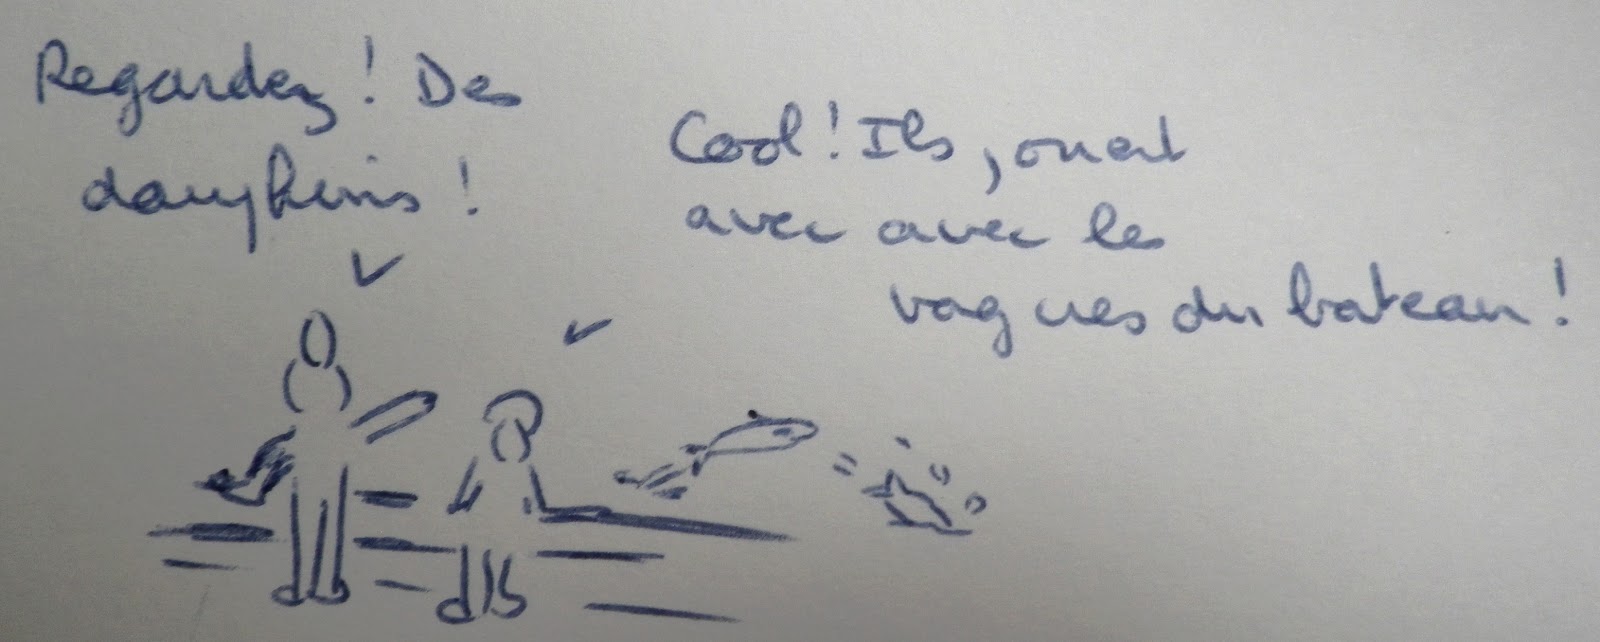 Regardez ! Des
dauphins !
Cool ! Ils jouent
avec avec les
vagues du bateau !